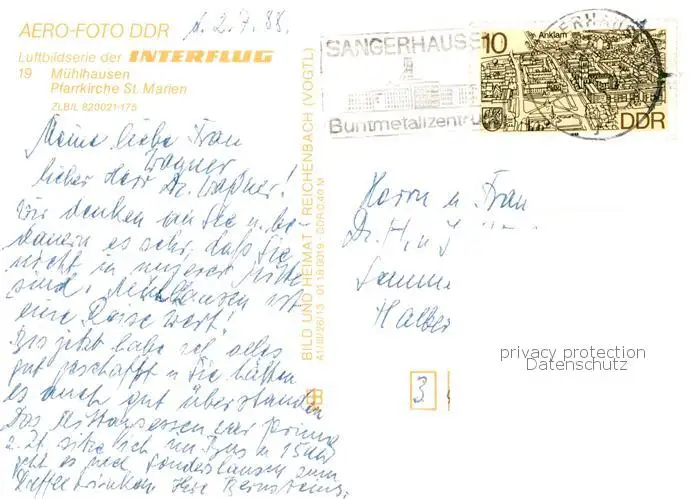 AERO-FOTO DDR
d. 2.7.88.
Luftbildserie der INTERFLUG
19 Mühlhausen
Pfarrkirche St. Marien
ZLB/L 820021-175
Meine liebe Frau
Wagner
lieber Herr Dr. Wagner!
Wir denken an Sie u. be-
dauern es sehr, daß Sie
nicht in unserer Mitte
sind. Mühlhausen ist
eine Reise wert!
Bis jetzt habe ich alles
gut geschafft u. Sie hätten
es auch gut überstanden
Das Mittagessen war prima
z. Zt. sitze ich im Bus u. 15 Uhr
geht es nach Sondershausen zum
Kaffeetrinken Ihre Bernsteins.
BILD UND HEIMAT REICHENBACH (VOGTL)
A1/III/26/13 01 18 0319
SANGERHAUSE
Buntmetallzentru
GERHAUS
10
Anklam
DDR
Herrn u Frau
Dr. H. u
Halber
3
privacy protection
Datenschutz